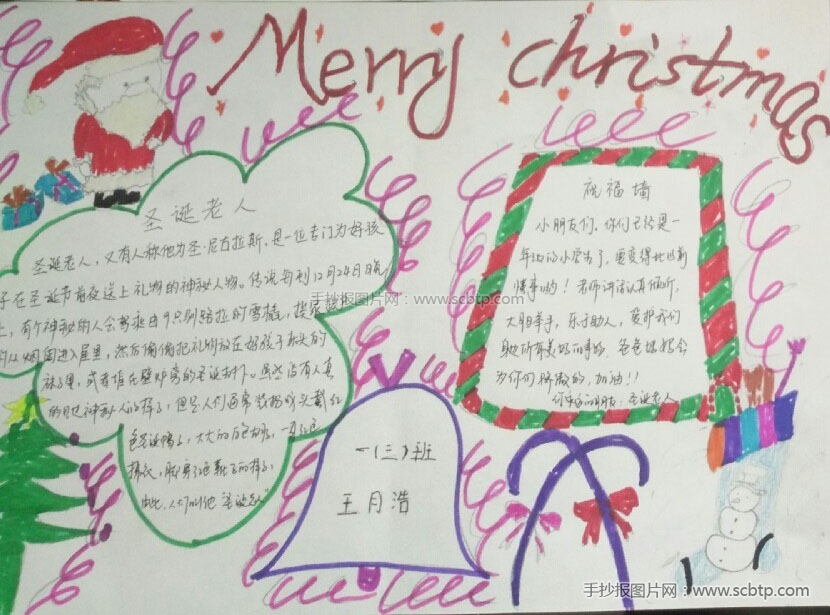 Merry christmas
圣诞老人
圣诞老人，又有人称他为圣·尼古拉斯，是一位专门为好孩
子在圣诞节前夜送上礼物的神秘人物。传说每到12月24日晚
上，有个神秘的人会驾乘由9只驯鹿拉的雪橇，挨家挨户
的从烟囱进入屋里，然后偷偷把礼物放在好孩子床头的
袜子里，或者堆在壁炉旁的圣诞树下。虽然没有人真
的见神秘人的样子，但是人们通常装扮成头戴红
色圣诞帽子，大大的白色胡子，一身红色
棉衣，脚穿红色靴子的样子，
由此，人们叫他“圣诞老人”
祝福墙
小朋友们，你们已经是一
年级的小学生了，要变得比以前
懂事哟！老师讲课认真倾听，
大胆举手，乐于助人，爱护我们
身边所有美好的事物。爸爸妈妈会
为你们骄傲的，加油！！
你的朋友：圣诞老人
一(三)班
王月浩
手抄报图片网·www.scbtp.com
手抄报图片网·www.scbtp.com